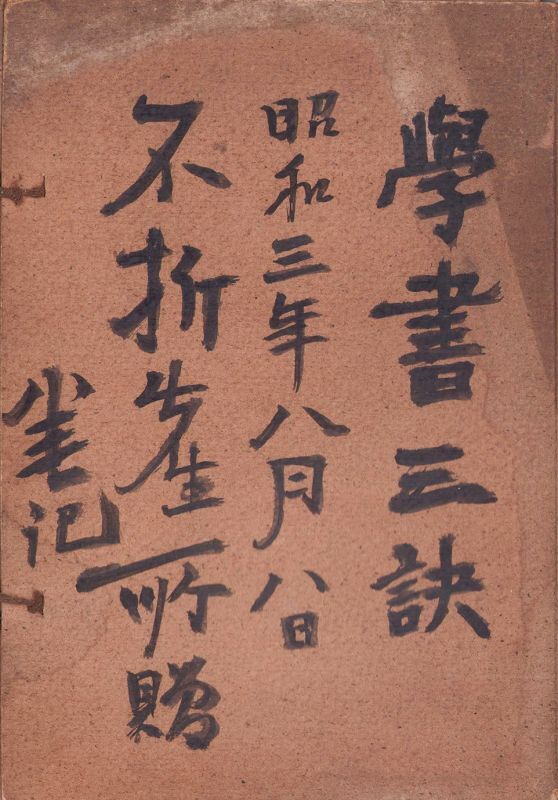 學書三訣
昭和三年八月八日
不折先生所贈
記